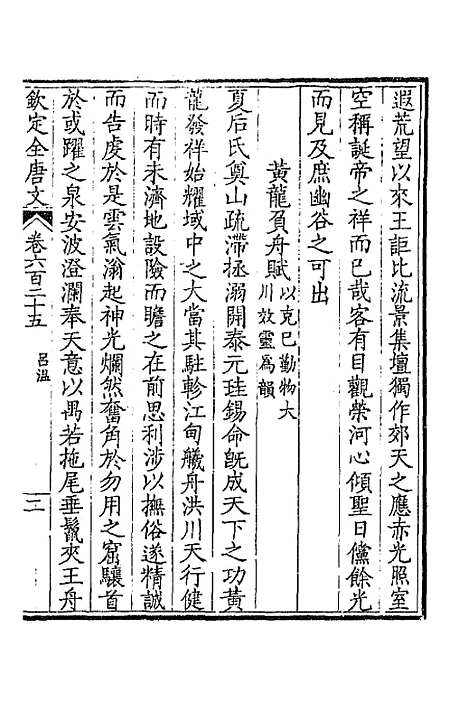 遐荒望以來王詎比流景集壇獨作郊天之應赤光照室
空稱誕帝之祥而已哉客有目觀榮河心傾聖日儻餘光
而見及庶幽谷之可出
黃龍負舟賦
以克已勤物大
川效靈爲韻
夏后氏奠山疏滯拯溺開泰元珪錫命旣成天下之功黃
龍發祥始耀域中之大當其駐軫江甸艤舟洪川天行健
而時有未濟地設險而瞻之在前思利涉以撫俗遂精誠
而告虔於是雲氣滃起神光爛然奮角於勿用之窟驤首
於或躍之泉安波澄瀾奉天意以禺若拖尾垂鬣夾王舟
欽定全唐文
卷六百二十五
呂溫
二